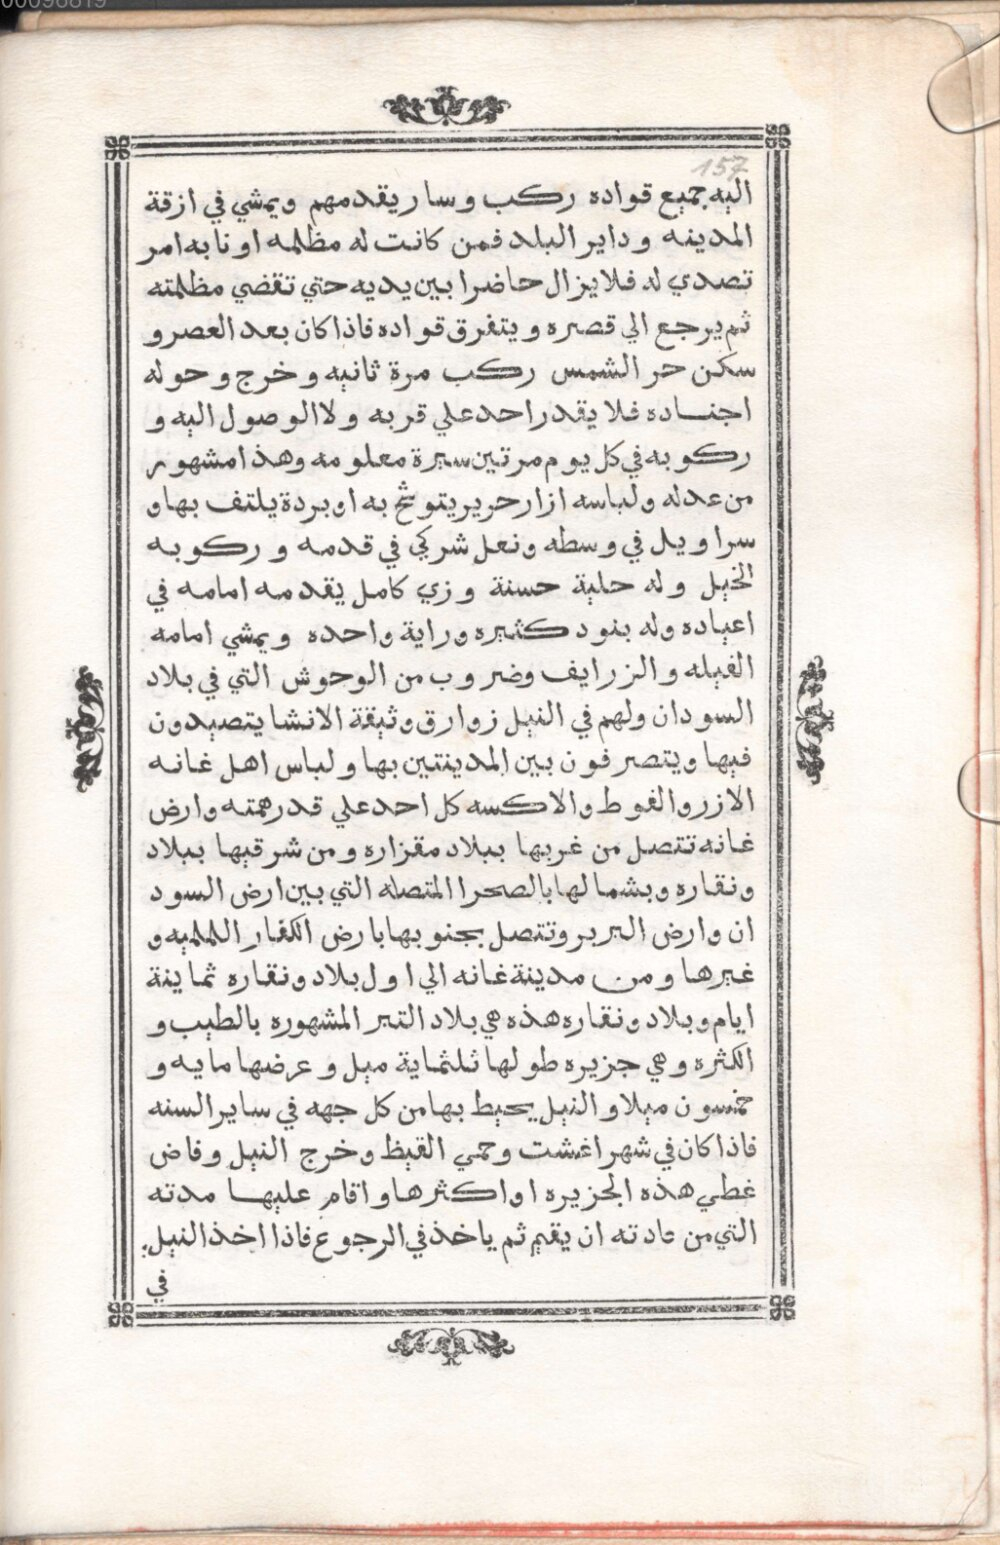 00098819
157
اليه جميع قواده ركب وسار يقدمهم ويمشي في ازقة
المدينه وداير البلد فمن كانت له مظلمه او نابه امر
تصدي له فلا يزال حاضرا بين يديه حتي تقضي مظلمته
ثم يرجع الي قصره ويتفرق قواده فاذا كان بعد العصر و
سكن حر الشمس ركب مرة ثانيه وخرج وحوله
اجناده فلا يقدر احد علي قربه ولا الوصول اليه و
ركوبه في كل يوم مرتين سيرة معلومه وهذا مشهور
من عدله ولباسه ازار حرير يتوشح به او بردة يلتف بها و
سراويل في وسطه ونعل شركي في قدمه وركوبه
الخيل وله حلية حسنة وزي كامل يقدمه امامه في
اعياده وله بنود كثيره وراية واحده ويمشي امامه
الفيله والزرايف وضروب من الوحوش التي في بلاد
السودان ولهم في النيل زوارق وثيقة الانشا يتصيدون
فيها ويتصرفون بين المدينتين بها ولباس اهل غانه
الازر والفوط والاكسه كل احد علي قدر همته وارض
غانه تتصل من غربها ببلاد مقزاره ومن شرقيها ببلاد
ونقاره وبشمالها بالصحرا المتصله التي بين ارض السود
ان وارض البربر وتتصل بجنوبها بارض الكفار اللملميه و
غيرها ومن مدينة غانه الي اول بلاد ونقاره ثماينة
ايام وبلاد ونقاره هذه هي بلاد التبر المشهوره بالطيب و
الكثره وهي جزيره طولها ثلثماية ميل وعرضها مايه و
خمسون ميلا والنيل يحيط بها من كل جهه في ساير السنه
فاذا كان في شهر اغشت وحمي القيظ وخرج النيل وفاض
غطي هذه الجزيره او اكثرها واقام عليها مدته
التي من عادته ان يقيم ثم ياخذ في الرجوع فاذا اخذ النيل
في